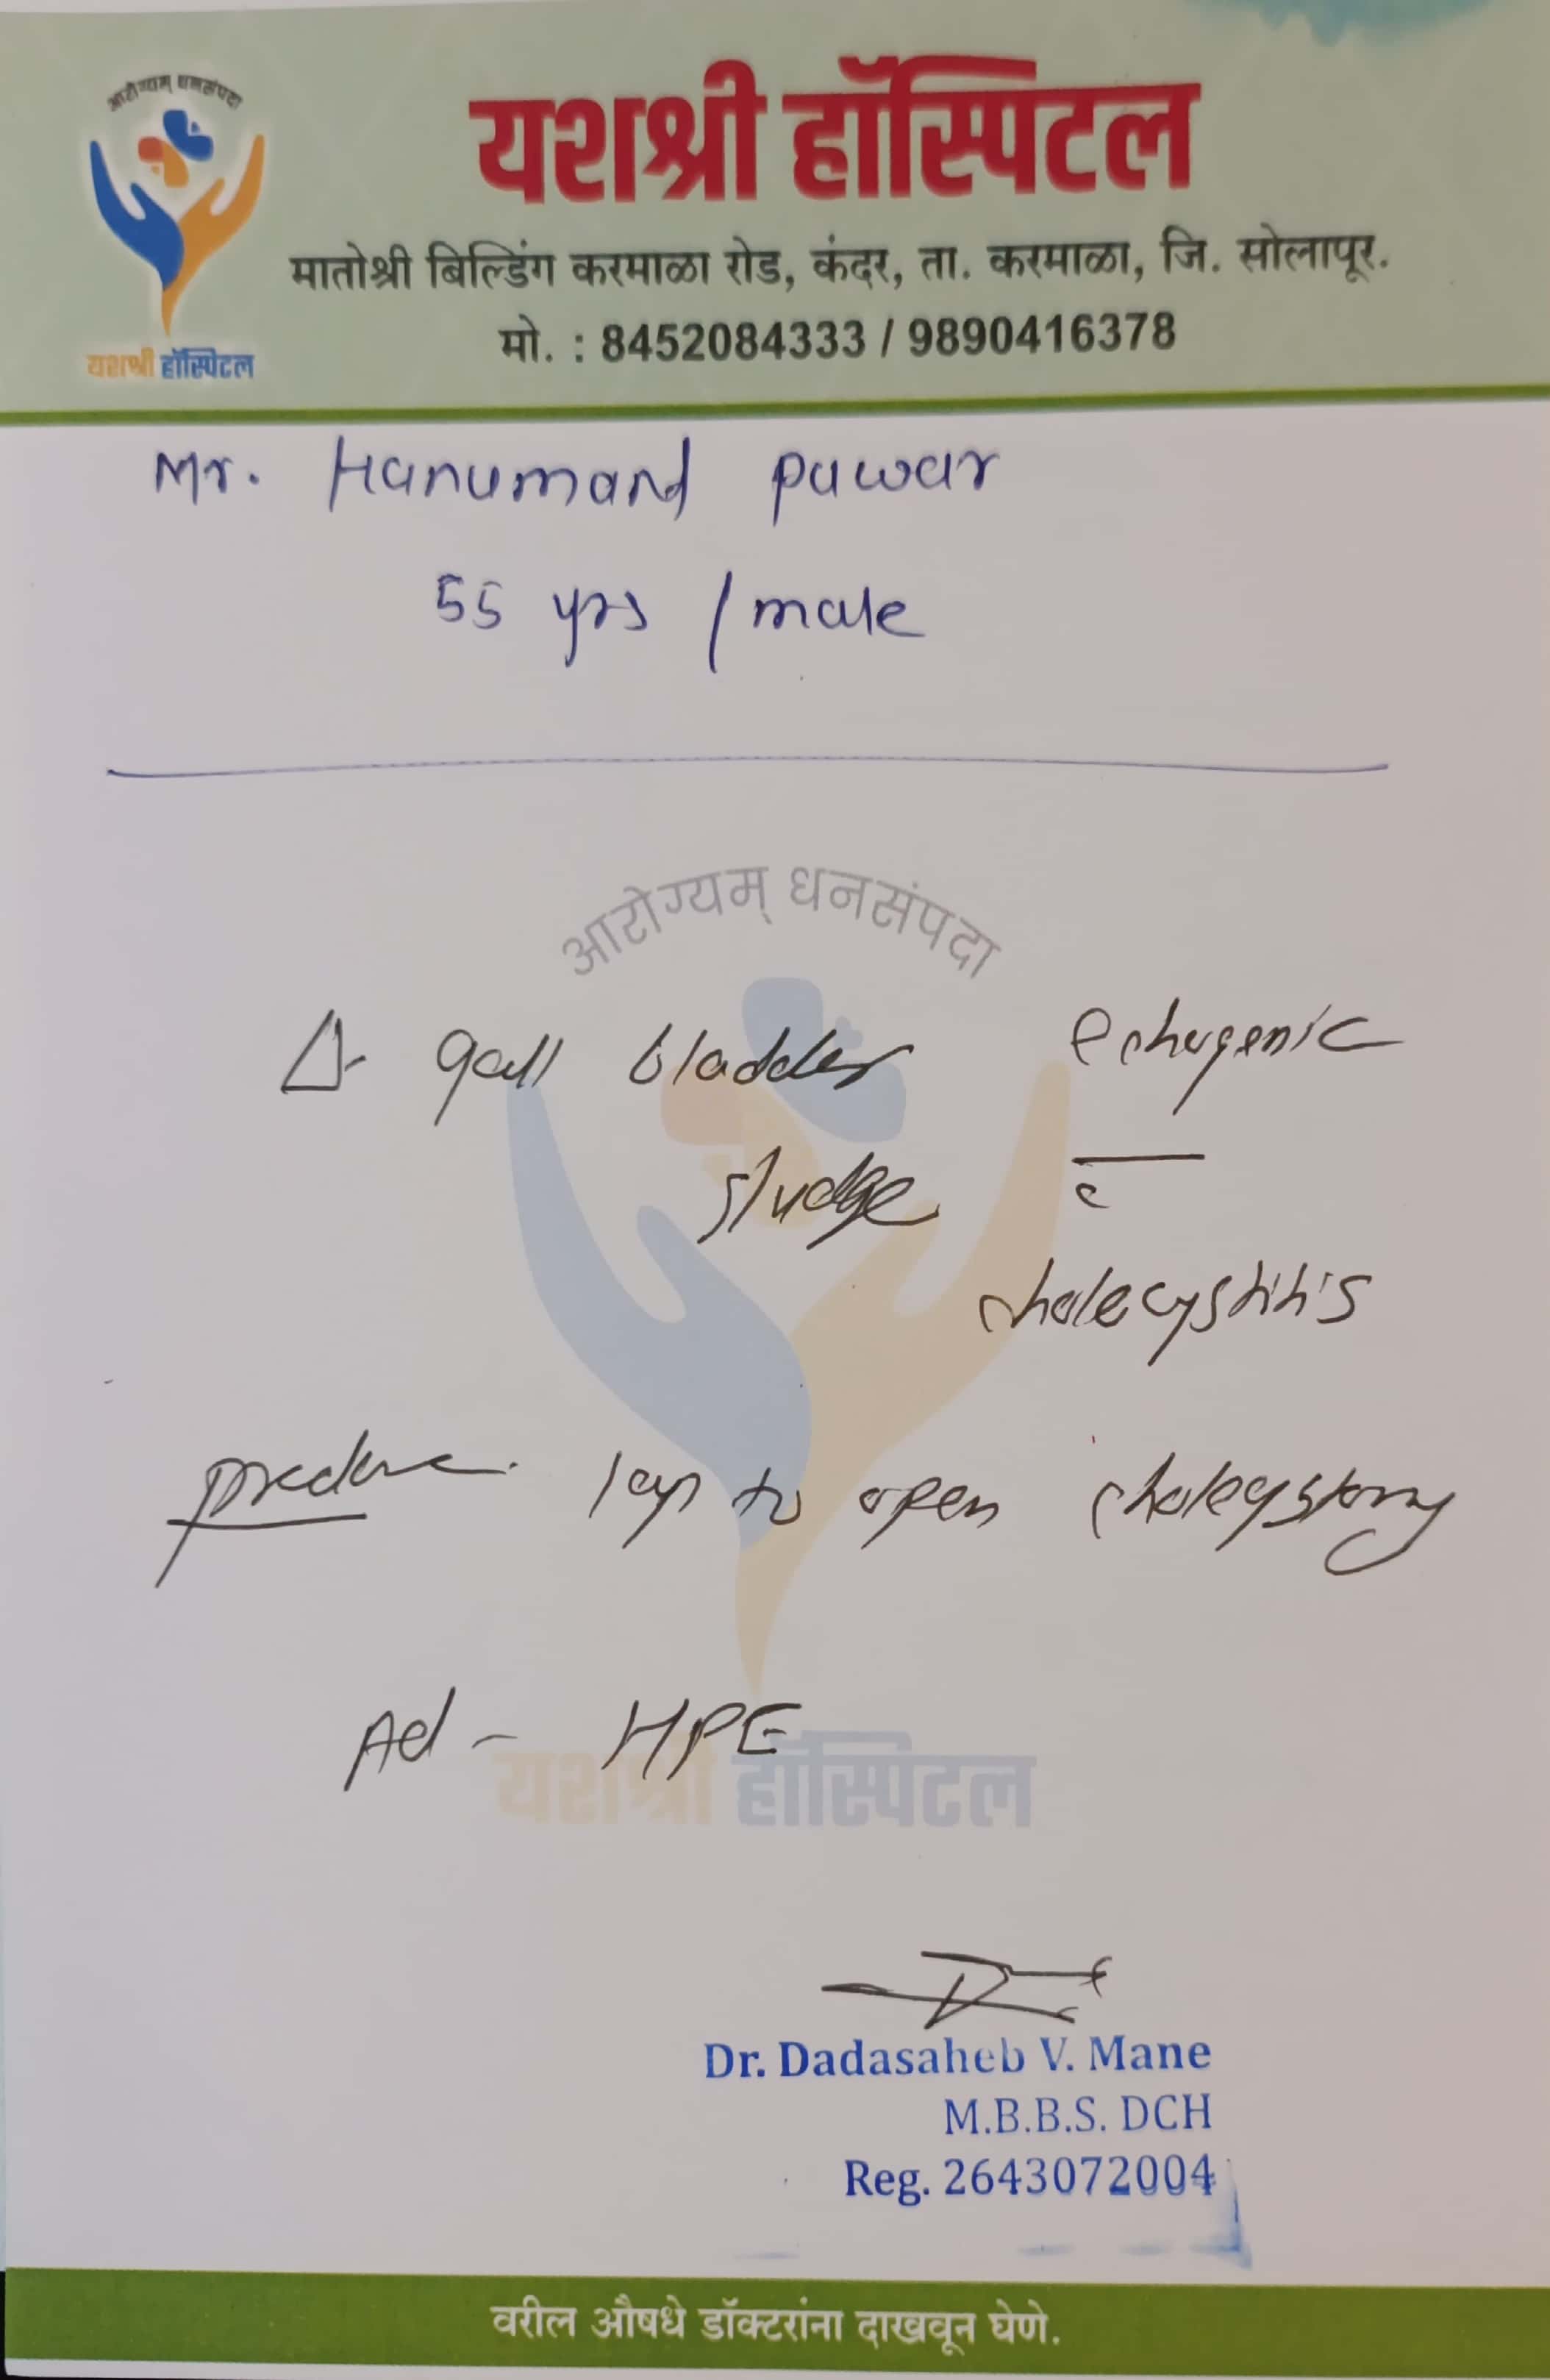 आरोग्यम् धनसंपदा
यशश्री हॉस्पिटल
यशश्री हॉस्पिटल
मातोश्री बिल्डिंग करमाळा रोड, कंदर, ता. करमाळा, जि. सोलापूर.
मो. : 8452084333 / 9890416378
Mr. Hanumand pawar
55 yrs / male
आरोग्यम् धनसंपदा
Δ- gall bladder echogenic
sludge c̅
cholecystitis
lap to open
Ad - HPE
यशश्री हॉस्पिटल
Dr. Dadasaheb V. Mane
M.B.B.S. DCH
Reg. 2643072004
वरील औषधे डॉक्टरांना दाखवून घेणे.